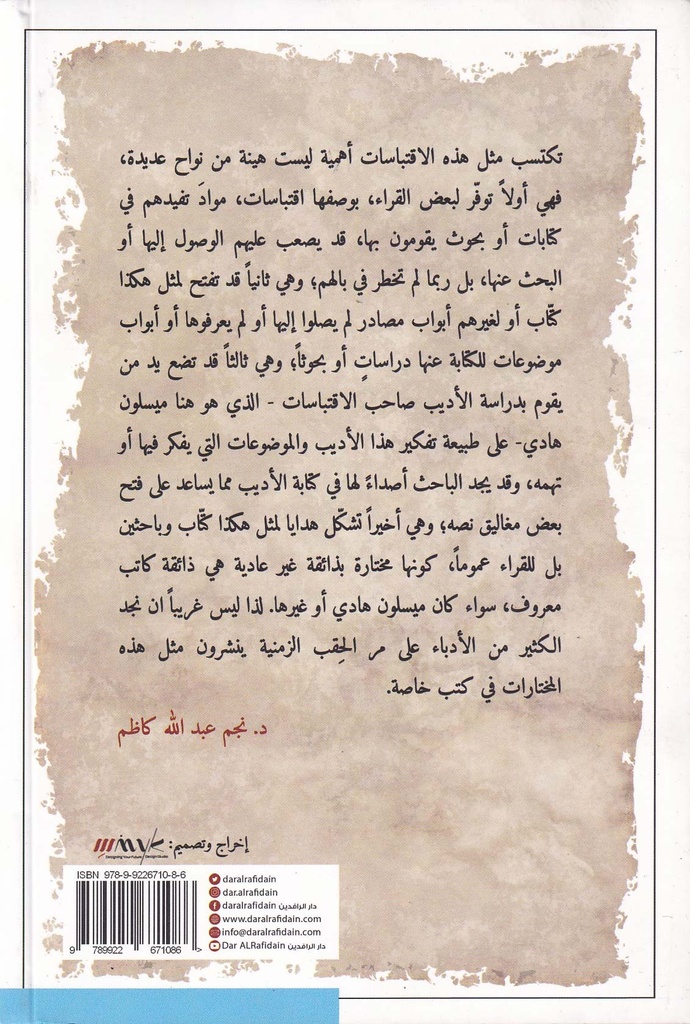 تكتسب مثل هذه الاقتباسات أهمية ليست هينة من نواح عديدة،
فهي أولاً توفّر لبعض القراء، بوصفها اقتباسات، موادَ تفيدهم في
كتابات أو بحوث يقومون بها، قد يصعب عليهم الوصول إليها أو
البحث عنها، بل ربما لم تخطر في بالهم؛ وهي ثانياً قد تفتح لمثل هكذا
كتّاب أو لغيرهم أبواب مصادر لم يصلوا إليها أو لم يعرفوها أو أبواب
موضوعات للكتابة عنها دراساتٍ أو بحوثاً؛ وهي ثالثاً قد تضع يد من
يقوم بدراسة الأديب صاحب الاقتباسات - الذي هو هنا ميسلون
هادي- على طبيعة تفكير هذا الأديب والموضوعات التي يفكر فيها أو
تهمه، وقد يجد الباحث أصداءً لها في كتابة الأديب مما يساعد على فتح
بعض مغاليق نصه؛ وهي أخيراً تشكّل هدايا لمثل هكذا كتّاب وباحثين
بل للقراء عموماً، كونها مختارة بذائقة غير عادية هي ذائقة كاتب
معروف، سواء كان ميسلون هادي أو غيرها. لذا ليس غريباً ان نجد
الكثير من الأدباء على مر الحِقب الزمنية ينشرون مثل هذه
المختارات في كتب خاصة.
د. نجم عبد الله كاظم
إخراج وتصميم:
ISBN 978-9-9226710-8-6
9 789922 671086 >
daralrafidain
dar.alrafidain
daralrafidain دار الرافدين
www.daralrafidain.com
info@daralrafidain.com
Dar ALRafidain دار الرافدين